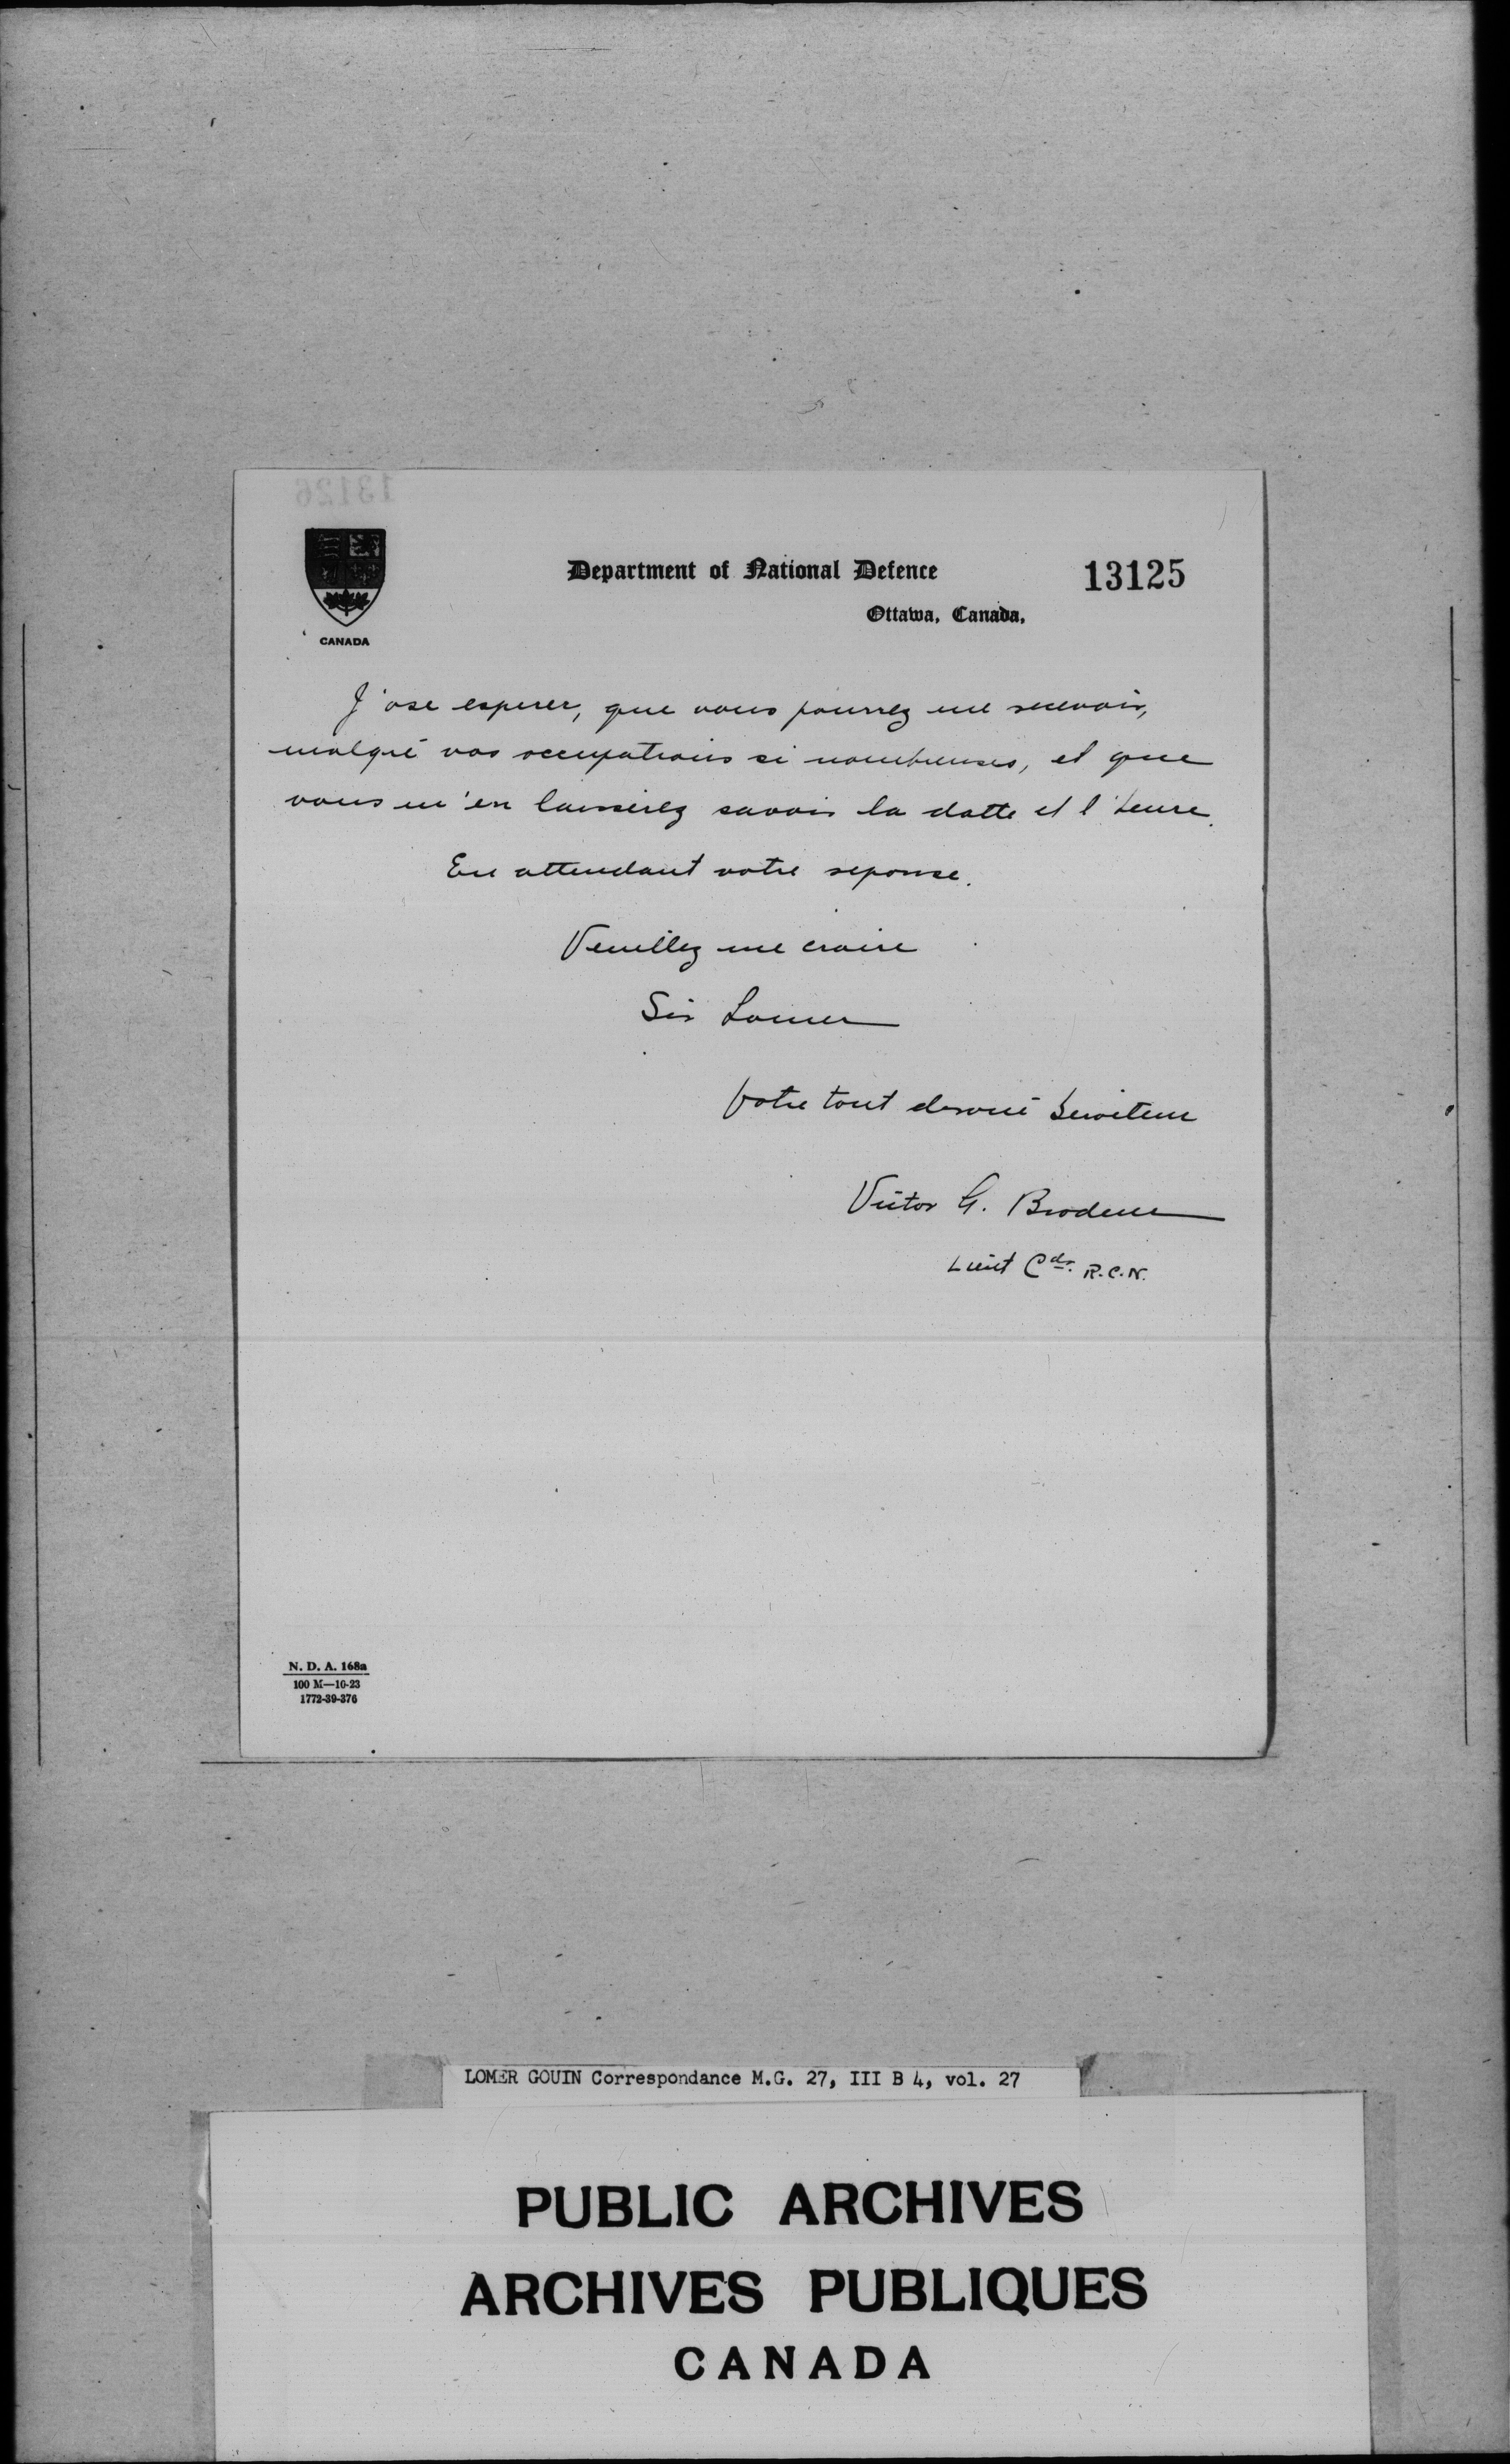 13126
CANADA
Department of National Defence
13125
Ottawa, Canada,
J'ose esperer, que vous pourrez me recevoir,
malgré vos occupations si nombreuses, et que
vous m'en laisserez savoir la datte et l'heure.
En attendant votre reponse.
Veuillez me croire
Sir Lomer
Votre tout devoué Serviteur
Victor G. Brodeur
Lieut Cdr. R.C.N.
N. D. A. 168a
100 M—10-23
1772-39-376
LOMER GOUIN Correspondance M.G. 27, III B 4, vol. 27
PUBLIC ARCHIVES
ARCHIVES PUBLIQUES
CANADA